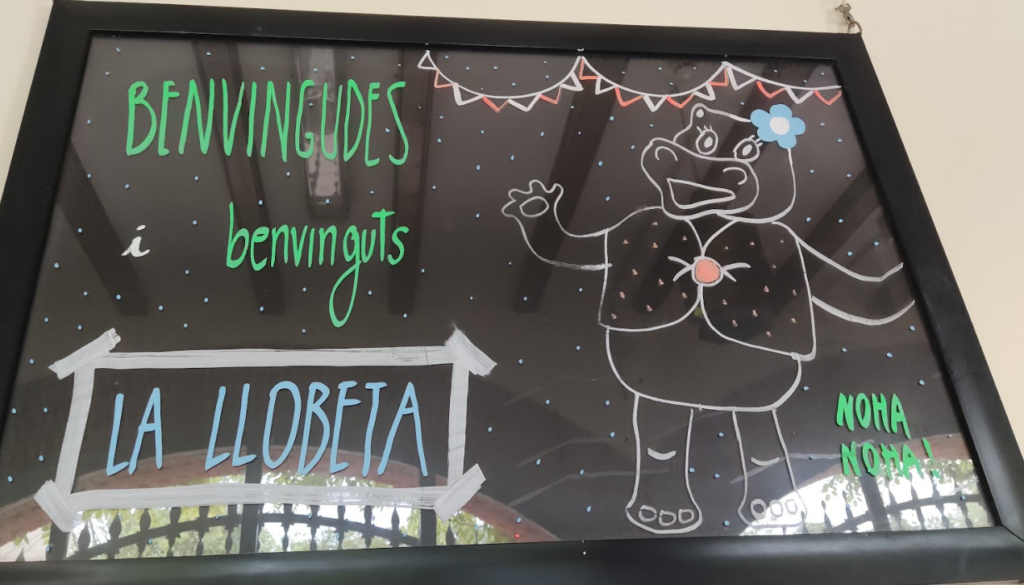 BENVINGUDES
i benvinguts
LA LLOBETA
NOHA
NOHA!